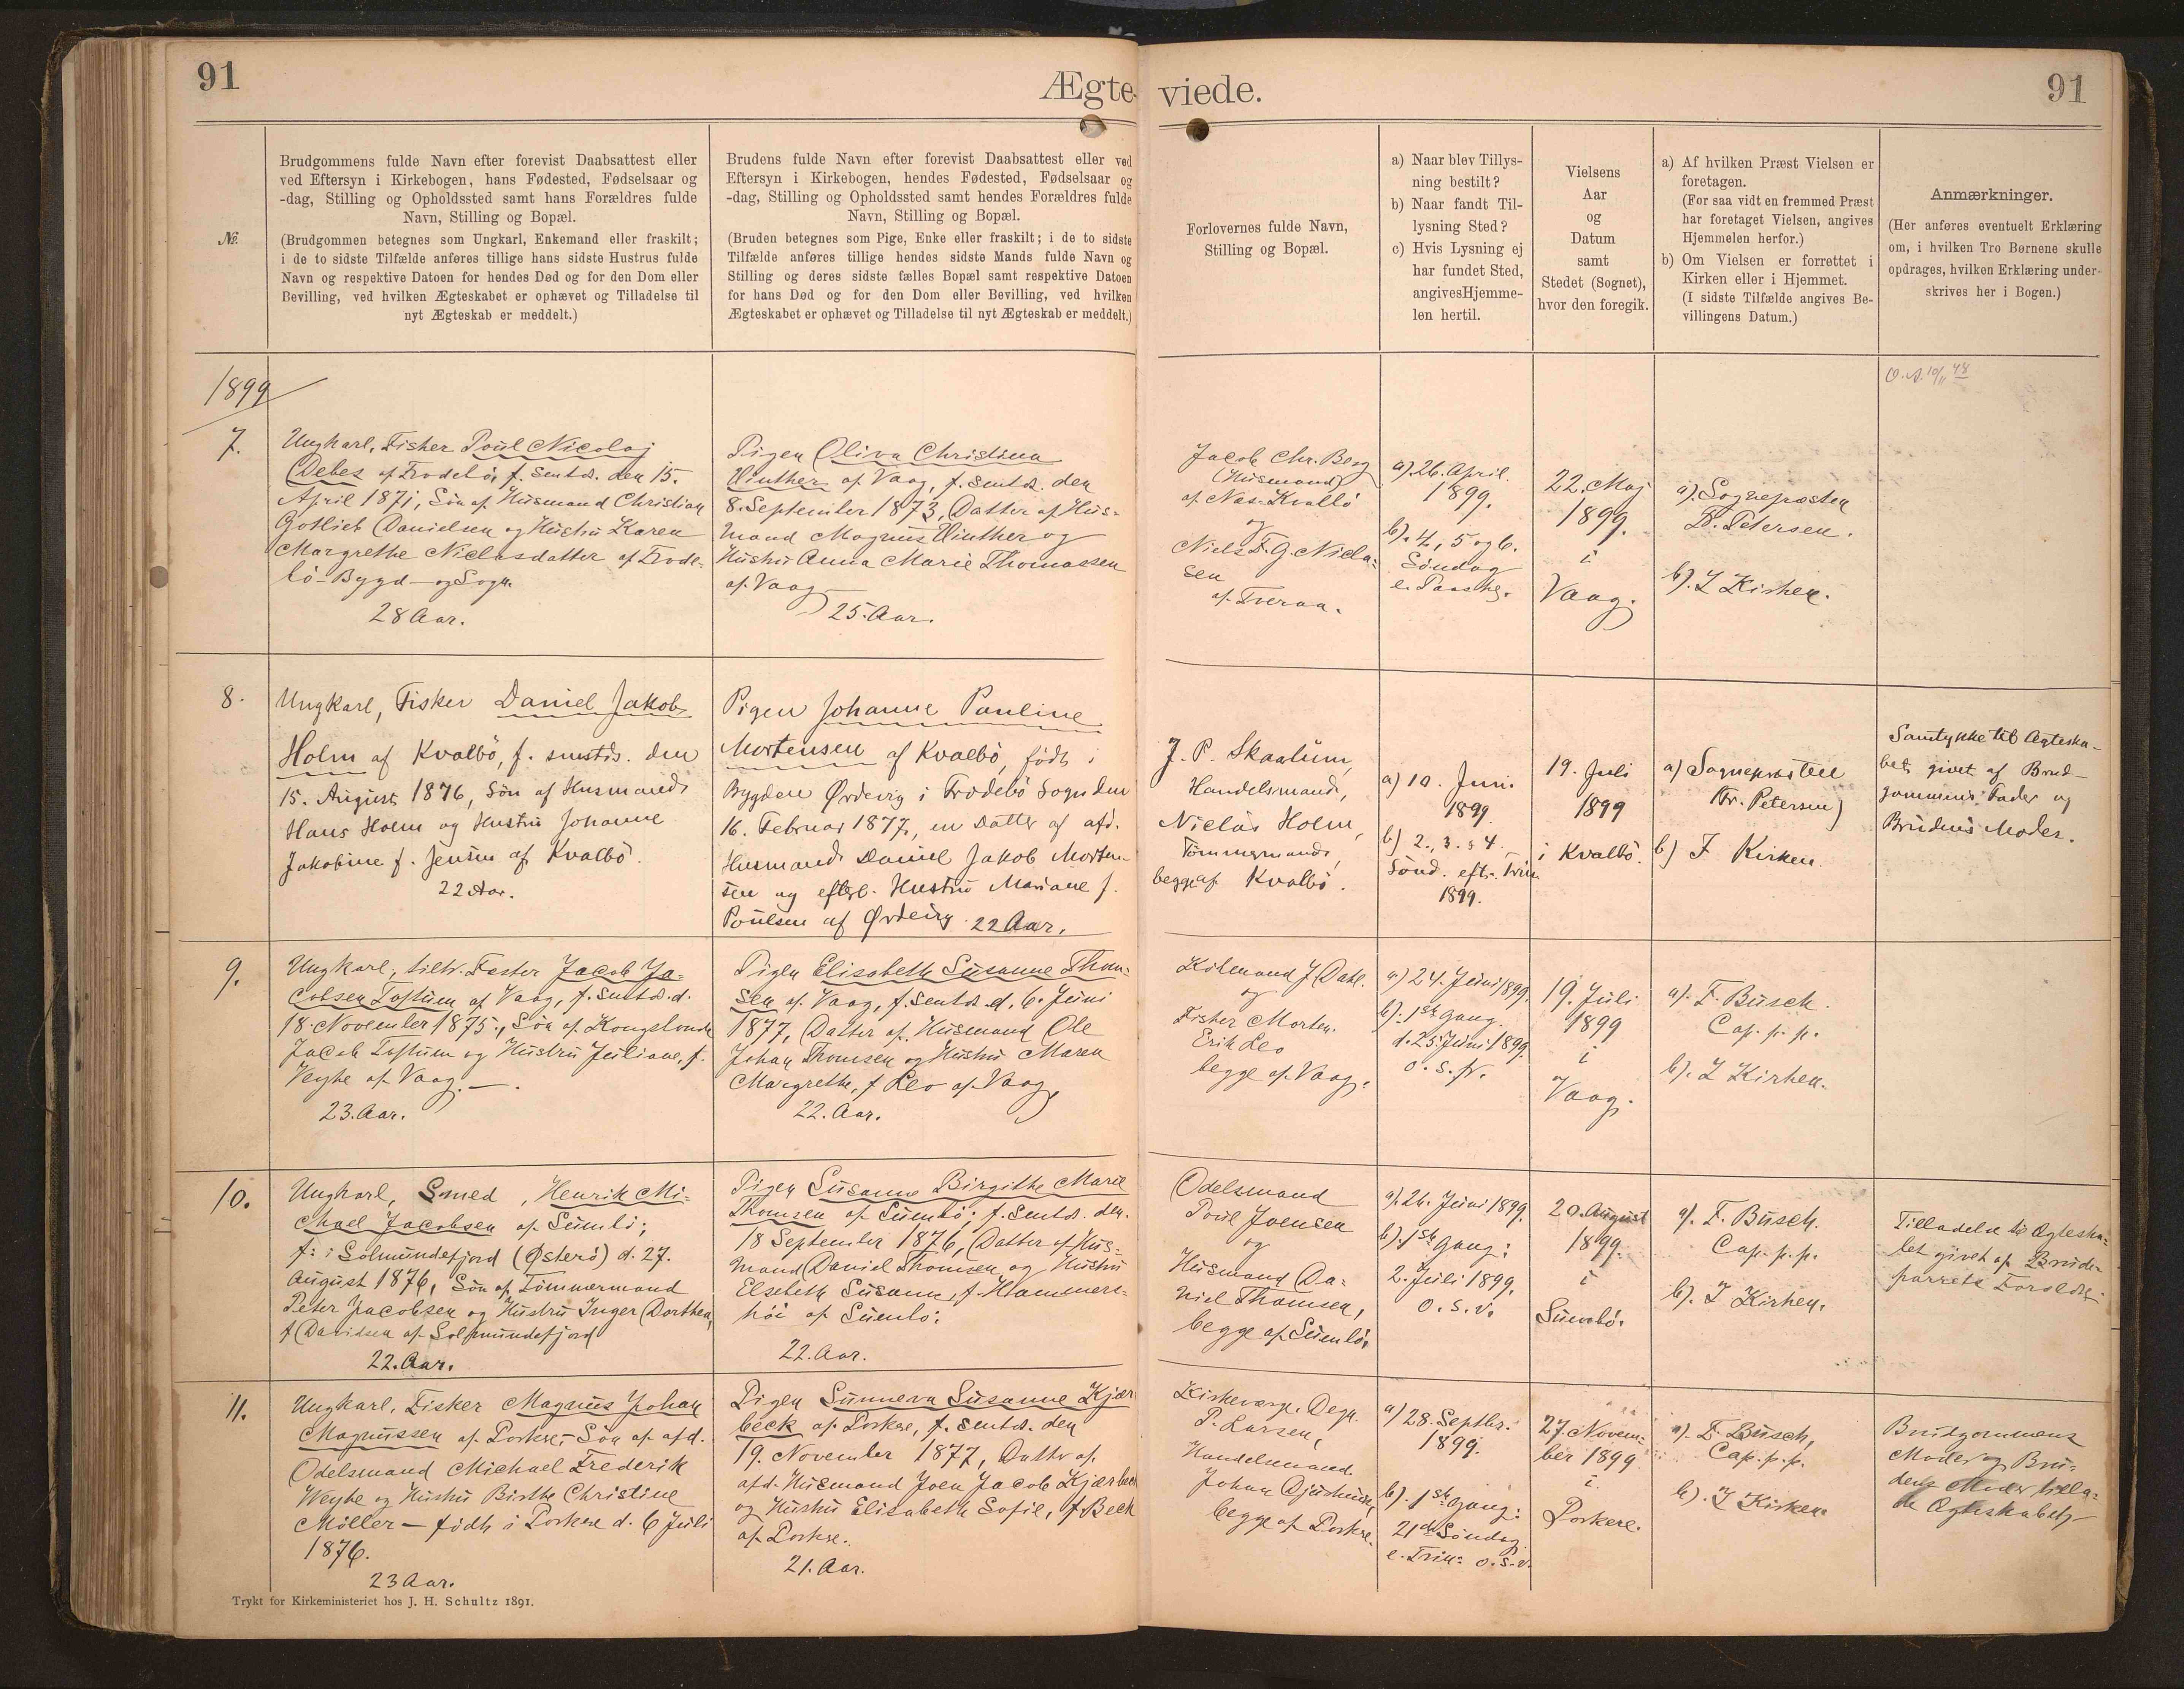 91
Ægte-
viede.
91
No.
Brudgommens fulde Navn efter forevist Daabsattest eller
ved Eftersyn i Kirkebogen, hans Fødested, Fødselsaar og
-dag, Stilling og Opholdssted samt hans Forældres fulde
Navn, Stilling og Bopæl.
(Brudgommen betegnes som Ungkarl, Enkemand eller fraskilt;
i de to sidste Tilfælde anføres tillige hans sidste Hustrus fulde
Navn og respektive Datoen for hendes Død og for den Dom eller
Bevilling, ved hvilken Ægteskabet er ophævet og Tilladelse til
nyt Ægteskab er meddelt.)
Brudens fulde Navn efter forevist Daabsattest eller ved
Eftersyn i Kirkebogen, hendes Fødested, Fødselsaar og
-dag, Stilling og Opholdssted samt hendes Forældres fulde
Navn, Stilling og Bopæl.
(Bruden betegnes som Pige, Enke eller fraskilt; i de to sidste
Tilfælde anføres tillige hendes sidste Mands fulde Navn og
Stilling og deres sidste fælles Bopæl samt respektive Datoen
for hans Død og for den Dom eller Bevilling, ved hvilken
Ægteskabet er ophævet og Tilladelse til nyt Ægteskab er meddelt.)
Forlovernes fulde Navn,
Stilling og Bopæl.
a) Naar blev Tillys-
ning bestilt?
b) Naar fandt Til-
lysning Sted?
c) Hvis Lysning ej
har fundet Sted,
angivesHjemme-
len hertil.
Vielsens
Aar
og
Datum
samt
Stedet (Sognet),
hvor den foregik.
a) Af hvilken Præst Vielsen er
foretagen.
(For saa vidt en fremmed Præst
har foretaget Vielsen, angives
Hjemmelen herfor.)
b) Om Vielsen er forrettet i
Kirken eller i Hjemmet.
(I sidste Tilfælde angives Be-
villingens Datum.)
Anmærkninger.
(Her anføres eventuelt Erklæring
om, i hvilken Tro Børnene skulle
opdrages, hvilken Erklæring under-
skrives her i Bogen.)
1899
7.
Ungkarl, Fisker Poul Nicolaj
Debes af Frodebö, f. smstds. den 15.
April 1871, Sön af Husmand Christian
Gotlieb Danielsen og Hustru Karen
Margrethe Niclasdatter af Frode-
bö-Bygd- og Sogn.
28 Aar.
Pigen Oliva Christina
Vinther af Vaag, f. smstds. den
8. September 1873, Datter af Hus-
mand Magnus Vinther og
Hustru Anna Marie Thomassen
af Vaag
25. Aar.
Jacob Chr. Berg
(Husmand)
af Nes-Kvalbö
og
Niels F. G. Nicla-
sen
af Tveraa.
a). 26. April.
1899.
b). 4, 5 og 6.
Söndag
e. Paaske.
22. Maj
1899.
i
Vaag.
a). Sognepræsten
Petersen.
b). I Kirken.
8.
Ungkarl, Fisker Daniel Jakob
Holm af Kvalbö, f. smstds. den
15. August 1876, Sön af Husmand
Hans Holm og Hustru Johanne
Jakobine f. Jensen af Kvalbö.
22 Aar.
Pigen Johanne Pauline
Mortensen af Kvalbö, født i
Bygden Ørdevig i Frodebö Sogn den
16. Februar 1877, en Datter af afd.
Husmand Daniel Jakob Morten-
sen og efterl. Hustru Mariane f.
Poulsen af Ørdevig. 22 Aar.
J. P. Skaalum,
Handelsmand,
Niclas Holm,
Tömmermand,
begge af Kvalbö.
a) 10. Juni
1899.
b) 2., 3. & 4.
Sönd. eft. Trin
1899.
19. Juli
1899
i Kvalbö.
a) Sognepræsten
(Fr. Petersen)
b) I Kirken.
Samtykke til Ægteska-
bet givet af Brud-
gommens Fader og
Brudens Moder.
9.
Ungkarl, tiltr. Fæster Jacob Ja-
cobsen Toftum af Vaag, f. smstds. d.
18. November 1875, Sön af Kongsbonde
Jacob Toftum og Hustru Juliane, f.
Veyhe af Vaag. —.
23. Aar.
Pigen Elisabeth Susanne Thom-
sen af Vaag, f. smstds. d. 6. Juni
1877, Datter af Husmand Ole
Johan Thomsen og Hustru Maren
Margrethe, f Leo af Vaag.
22. Aar.
Købmand J Dahl.
og
Fisker Morten
Erik Leo
begge af Vaag.
a) 24. Juni 1899.
b). 1ste Gang
d. 25. Juni 1899.
o. s. fr.
19. Juli
1899
i
Vaag.
a). F. Busch.
Cap. p. p.
b). I Kirken.
10.
Ungkarl, Smed, Henrik Mi-
chael Jacobsen af Sumbö;
f: i Solmundefjord (Østerö) d. 27.
August 1876, Sön af Tömmermand
Peter Jacobsen og Hustru Inger Dorthea,
f Davidsen af Solmundefjord
22. Aar.
Pigen Susanne Birgithe Marie
Thomsen af Sumbö; f. smstds. den.
18 September 1876, Datter af Hus-
mand Daniel Thomsen og Hustru
Elsebeth Susanne, f. Hammers-
höi af Sumbö:
22. Aar.
Odelsmand
Poul Joensen
og
Husmand Da-
niel Thomsen,
begge af Sumbö.
a). 26. Juni 1899.
b). 1ste Gang:
2. Juli 1899.
o. s. v.
20. August
1899.
i
Sumbö.
a). F. Busch.
Cap. p. p.
b). I Kirken.
Tilladelse til Ægteska-
bet givet af Brude-
parrets Forældre.
11.
Ungkarl, Fisker Magnus Johan
Magnussen af Porkere, - Sön af afd.
Odelsmand Michael Frederik
Weyhe og Hustru Birthe Christine
Möller — födt i Porkere d. 6 Juli
1876.
23 Aar.
Pigen Sunneva Susanne Kjær-
beck af Porkere, f. smstds. den
19. November 1877, Datter af
afd. Husmand Joen Jacob Kjærbeck
og Hustru Elisabeth Sofie, f Beck
af Porkere.
21. Aar.
Kirkeværge, Degn.
P. Larsen,
Handelsmand.
Johan Djurhuus,
begge af Porkere.
a) 28. Septbr.
1899.
b). 1ste Gang:
21de Söndag
e. Trin: o. s. v.
27. Novem-
ber 1899
i
Porkere.
a). F. Busch,
Cap. p. p.
b). I Kirken.
Brudgommens
Moder og Bru-
dens Moder tilla-
de Ægteskabet
Trykt for Kirkeministeriet hos J. H. Schultz 1891.